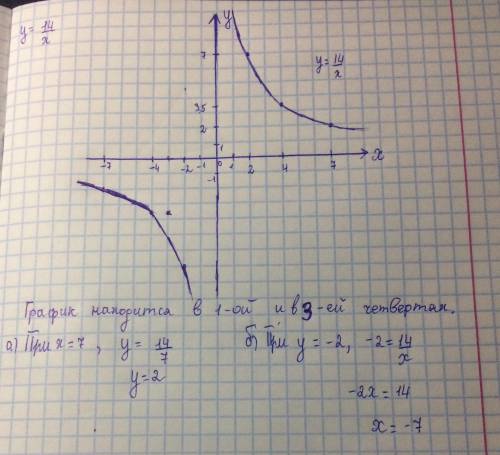 y = 14/x
y
7
y = 14/x
3,5
2
1
-7 -4 -2 -1 0 1 2 4 7 x
-1
График находится в 1-ой и в 3-ей четвертях.
а) При x = 7, y = 14/7
y = 2
б) При y = -2, -2 = 14/x
-2x = 14
x = -7